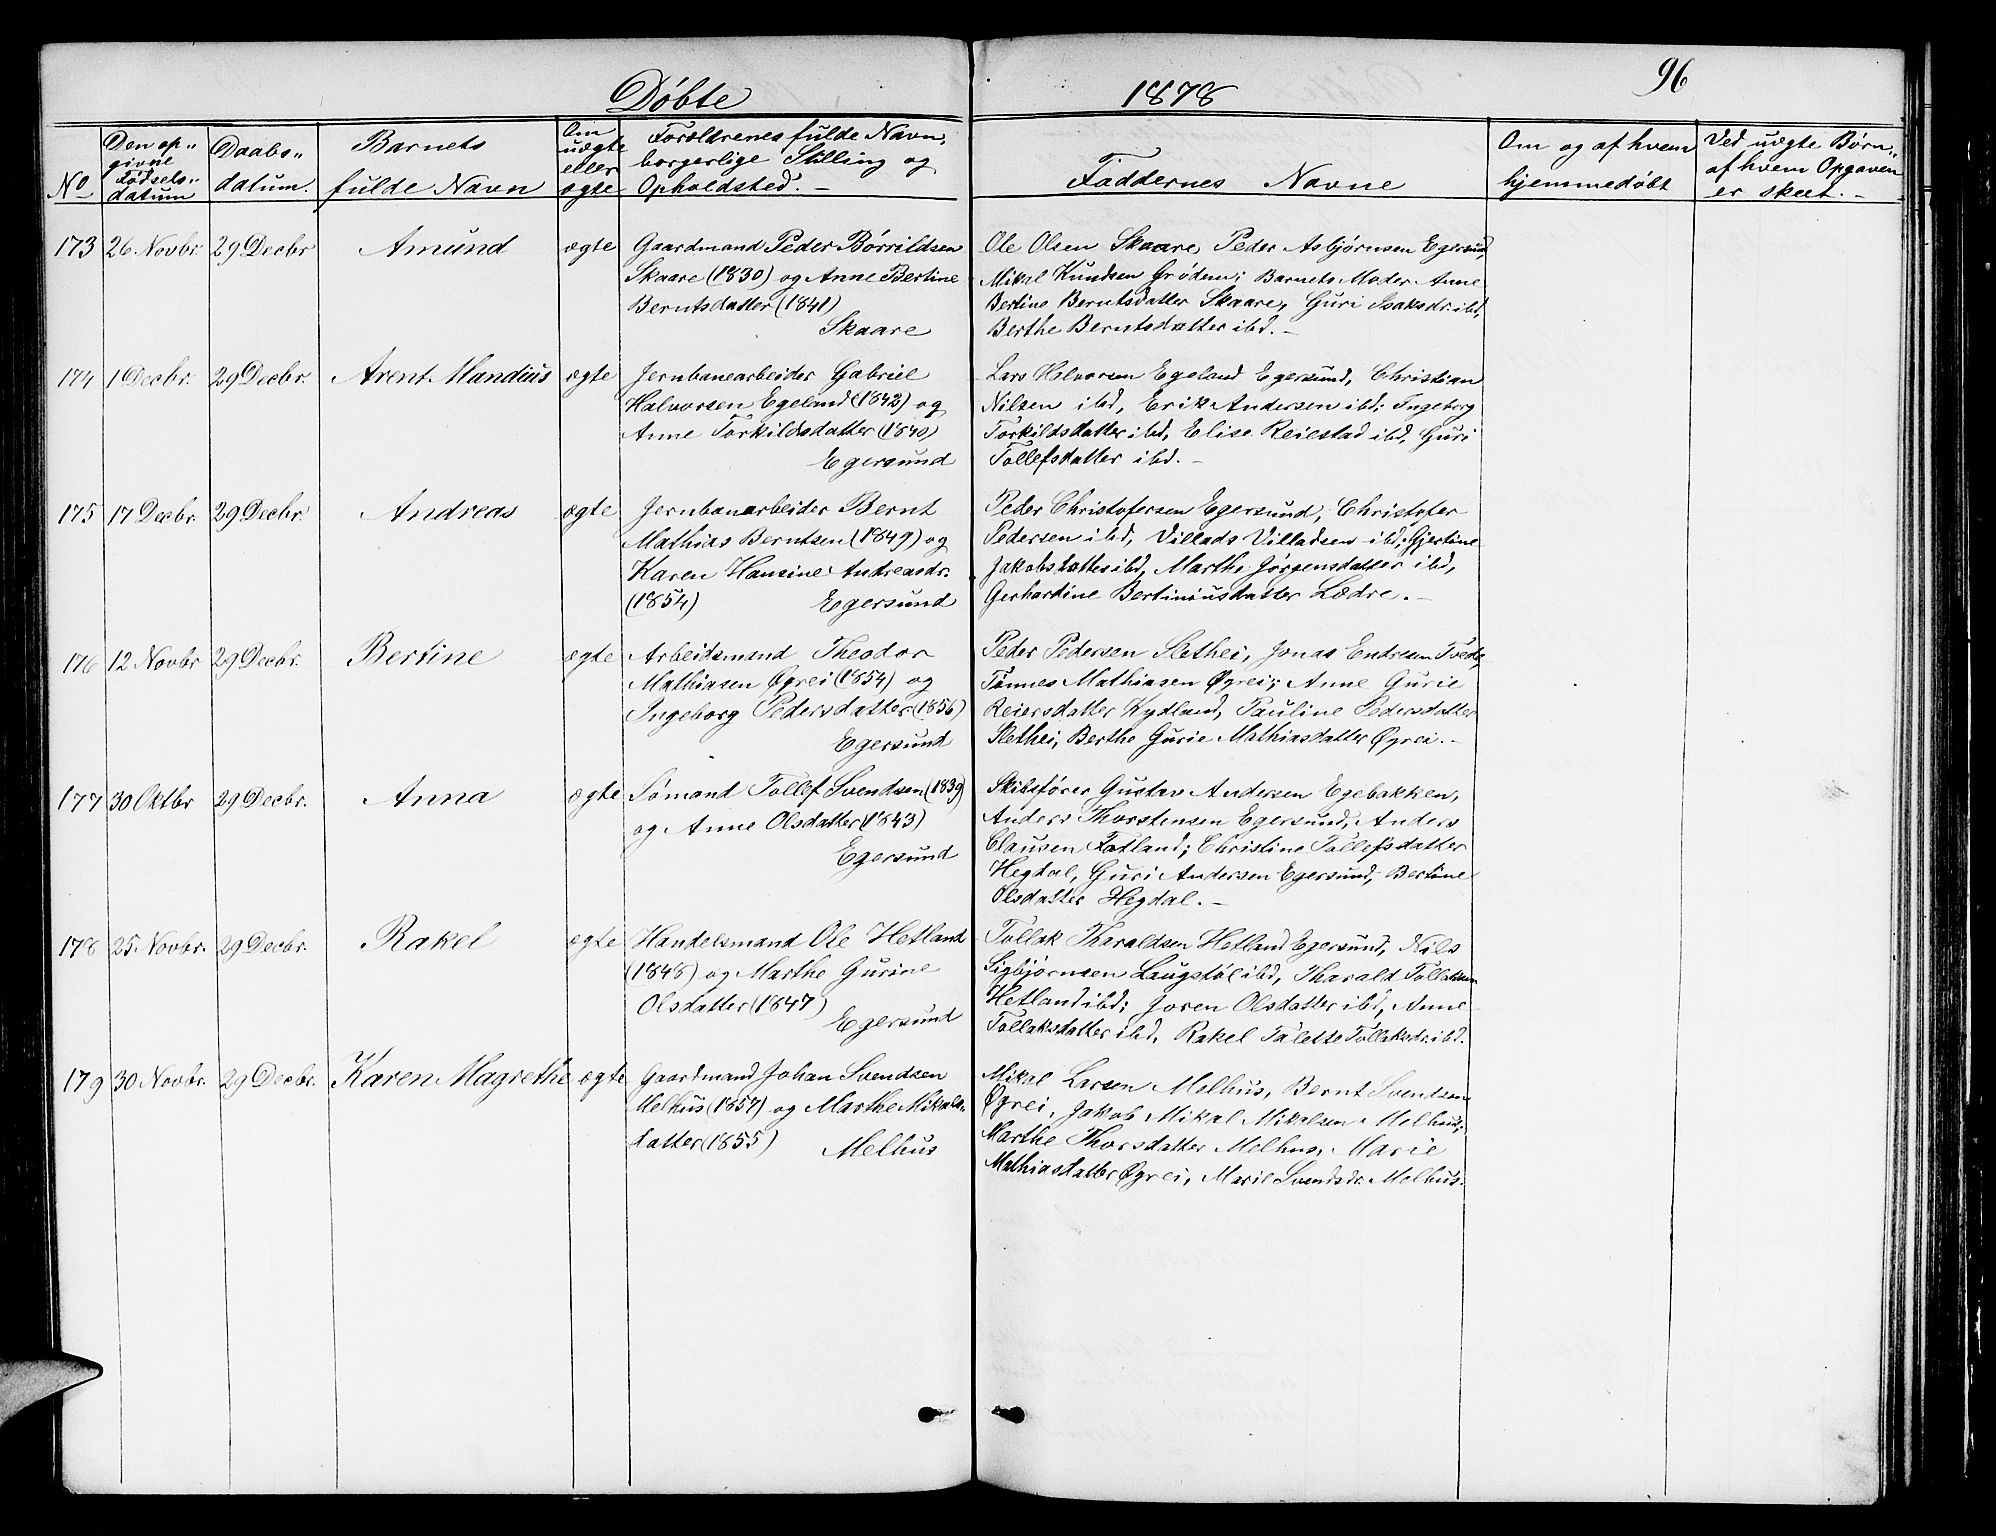 96
Døbte 1878
No
Den op-
givne
Fødsels-
datum
Daabs-
datum.
Barnets
fulde Navn
Om
uægte
eller
ægte
Forældrenes fulde Navn,
borgerlige Stilling og
Opholdsted. -
Faddernes Navne
Om og af hvem
hjemmedøbt
Ved uægte Børn,
af hvem Opgaven
er skeet. -
173 26 Novbr. 29 Decbr Amund ægte
Gaardmand Peder Børrildsen
Skaare (1830) og Anne Bertine
Berntsdatter (1841)
Skaare
Ole Olsen Skaare, Peder Asbjørnsen Egersund,
Mikal Knudsen Grødem; Barnets Moder Anne
Bertine Berntsdatter Skaare, Guri Isaksdr. ibd,
Berthe Berntsdatter ibd. -
174 1 Decbr. 29 Decbr. Arent Mandius ægte
Jernbanearbeider Gabriel
Halvorsen Egeland (1842) og
Anne Torkildsdatter (1840)
Egersund
Lars Halvorsen Egeland Egersund, Christian
Nilsen ibd, Erik Andersen ibd; Ingeborg
Torkildsdatter ibd, Elise Reiestad ibd, Guri
Tollefsdatter ibd. -
175 17 Decbr. 29 Decbr. Andreas ægte
Jernbanearbeider Bernt
Mathias Berntsen (1849) og
Karen Hansine Andreasdr.
(1854) Egersund
Peder Christofersen Egersund, Christofer
Pedersen ibd, Villads Villadsen ibd; Gjertine
Jakobsdatter ibd, Marthe Jørgensdatter ibd,
Gerhardine Bertiniusdatter Lædre. -
176 12 Novbr 29 Decbr. Bertine ægte
Arbeidsmand Theodor
Mathiasen Øgrei (1854) og
Ingeborg Pedersdatter (1856)
Egersund
Peder Pedersen Slethei, Jonas Endresen Tvede,
Tønnes Mathiasen Øgrei; Anne Gurie
Reiersdatter Kydland, Pauline Pedersdatter
Slethei, Berthe Gurie Mathiasdatter Øgrei. -
177 30 Oktbr 29 Decbr. Anna ægte
Sømand Tollef Svendsen (1839)
og Anne Olsdatter (1843)
Egersund
Skibsfører Gustav Andersen Egebakken,
Anders Thorstensen Egersund, Anders
Clausen Fotland; Christine Tollefsdatter
Hegdal, Guri Andersen Egersund, Bertine
Olsdatter Hegdal. -
178 25. Novbr. 29 Decbr. Rakel ægte
Handelsmand Ole Hetland
(1848) og Marthe Gurine
Olsdatter (1847)
Egersund
Tollak Tharaldsen Hetland Egersund, Nils
Sigbjørnsen Laugstøl ibd, Tharald Tollaksen
Hetland ibd; Joren Olsdatter ibd, Anne
Tollaksdatter ibd, Rakel Talette Tollaksdr. ibd.
179 30 Novbr. 29 Decbr. Karen Magrethe ægte
Gaardmand Johan Svendsen
Melhus (1857) og Marthe Mikals-
datter (1855) Melhus
Mikal Larsen Melhus, Bernt Svendsen
Øgrei, Jakob Mikal Mikalsen Melhus;
Marthe Thorsdatter Melhus, Marie
Mathiasdatter Øgrei, Marie Svendsdr. Melhus.